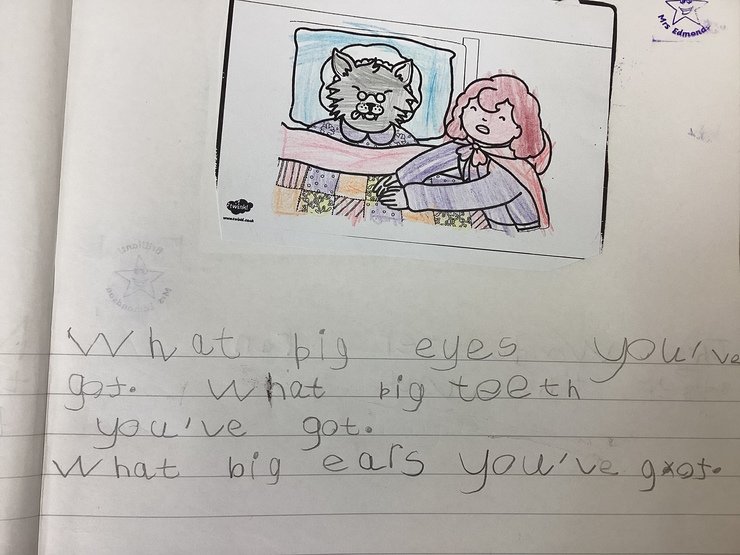 Mrs Edmond
twinkl
www.twinkl.co.uk
Brilliant!
What big eyes you've
got. What big teeth
you've got.
What big ears you've got.